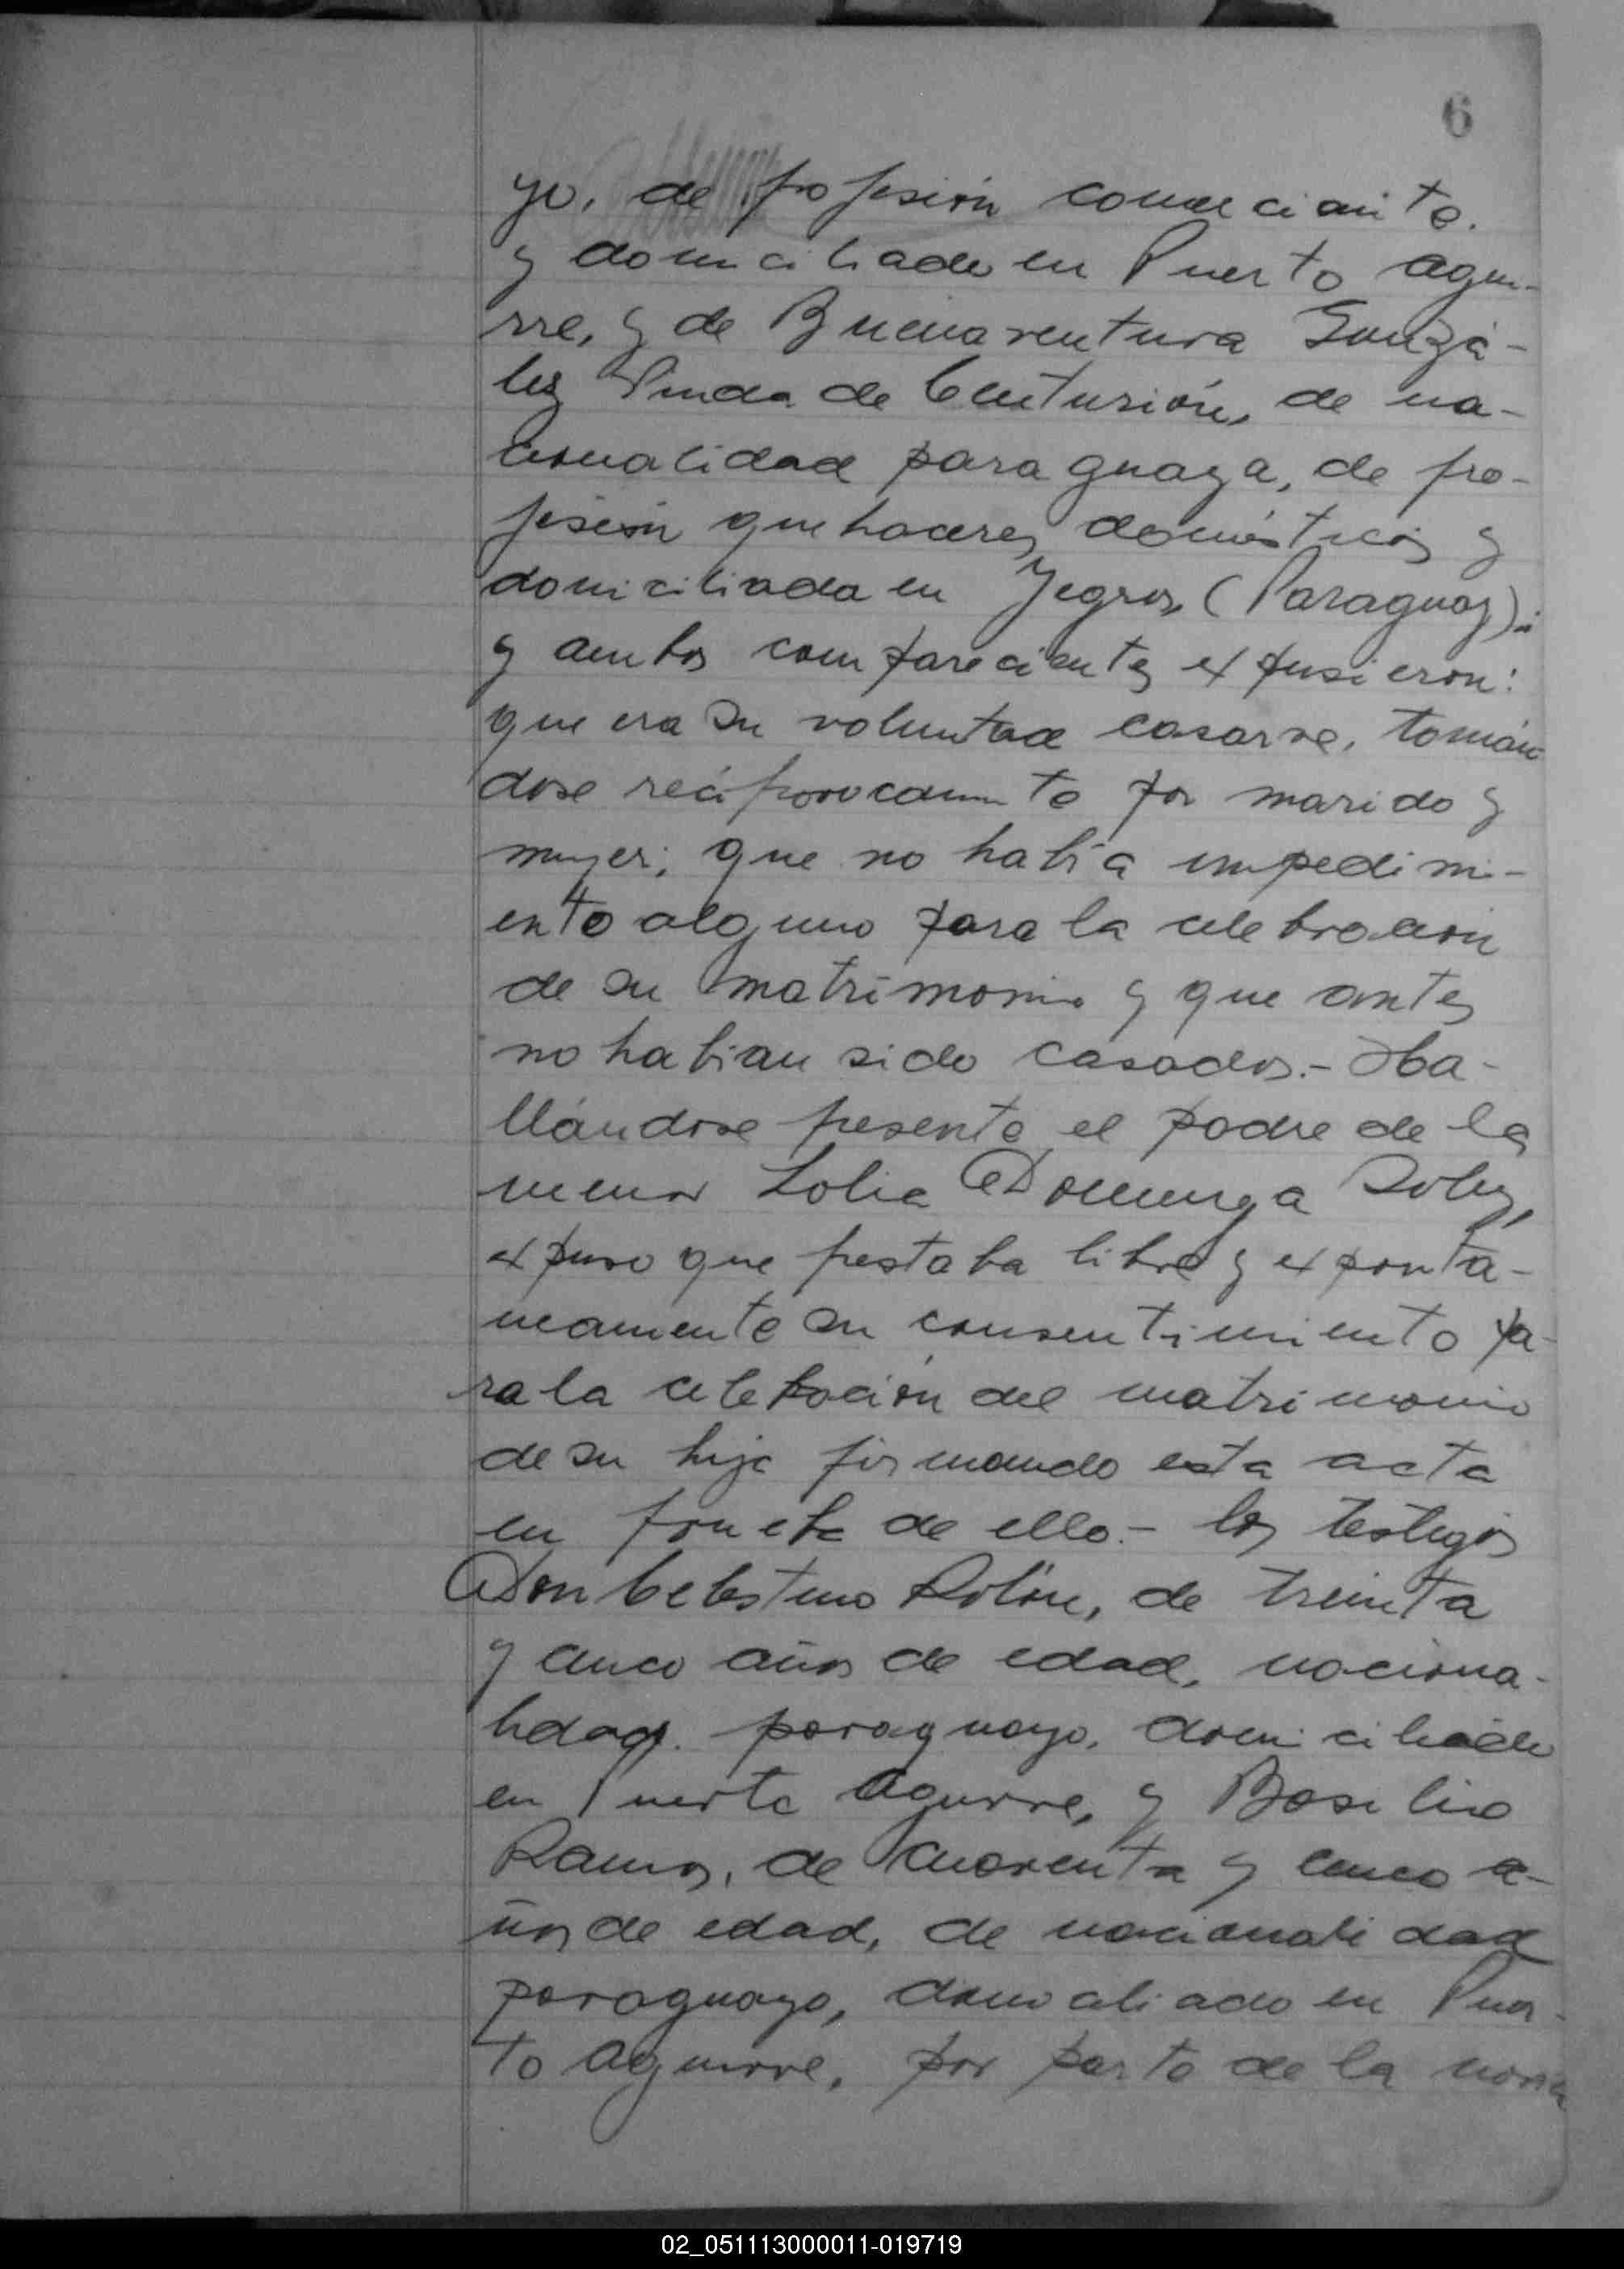 6
yo, de profesión comerciante.
y domiciliado en Puerto Agui-
rre, y de Buenaventura Gonzá-
les Viuda de Centurión, de na-
cionalidad paraguaya, de pro-
fesión quehaceres domésticos y
domiciliada en Yegros, (Paraguay).;
y ambos comparecientes expusieron:
que era su voluntad casarse, tomán-
dose recíprocamente por marido y
mujer; que no había impedimi-
ento alguno para la celebración
de su matrimonio y que antes
no habian sido casados.- Ha-
llándose presente el padre de la
menor Lolia Dominga
expuso que prestaba libre y exponta-
neamente su consentimiento pa-
ra la celebración del matrimonio
de su hija firmando esta acta
en prueba de ello.- los testigos
Don Celestino Rolón, de treinta
y cinco años de edad, naciona-
lidad paraguayo, domiciliado
en Puerto Aguirre, y Basilio
Ramos, de cuarenta y cinco a-
ños de edad, de nacionalidad
paraguayo, domiciliado en Puer-
to Aguirre, por parte de la novia
02_051113000011-019719